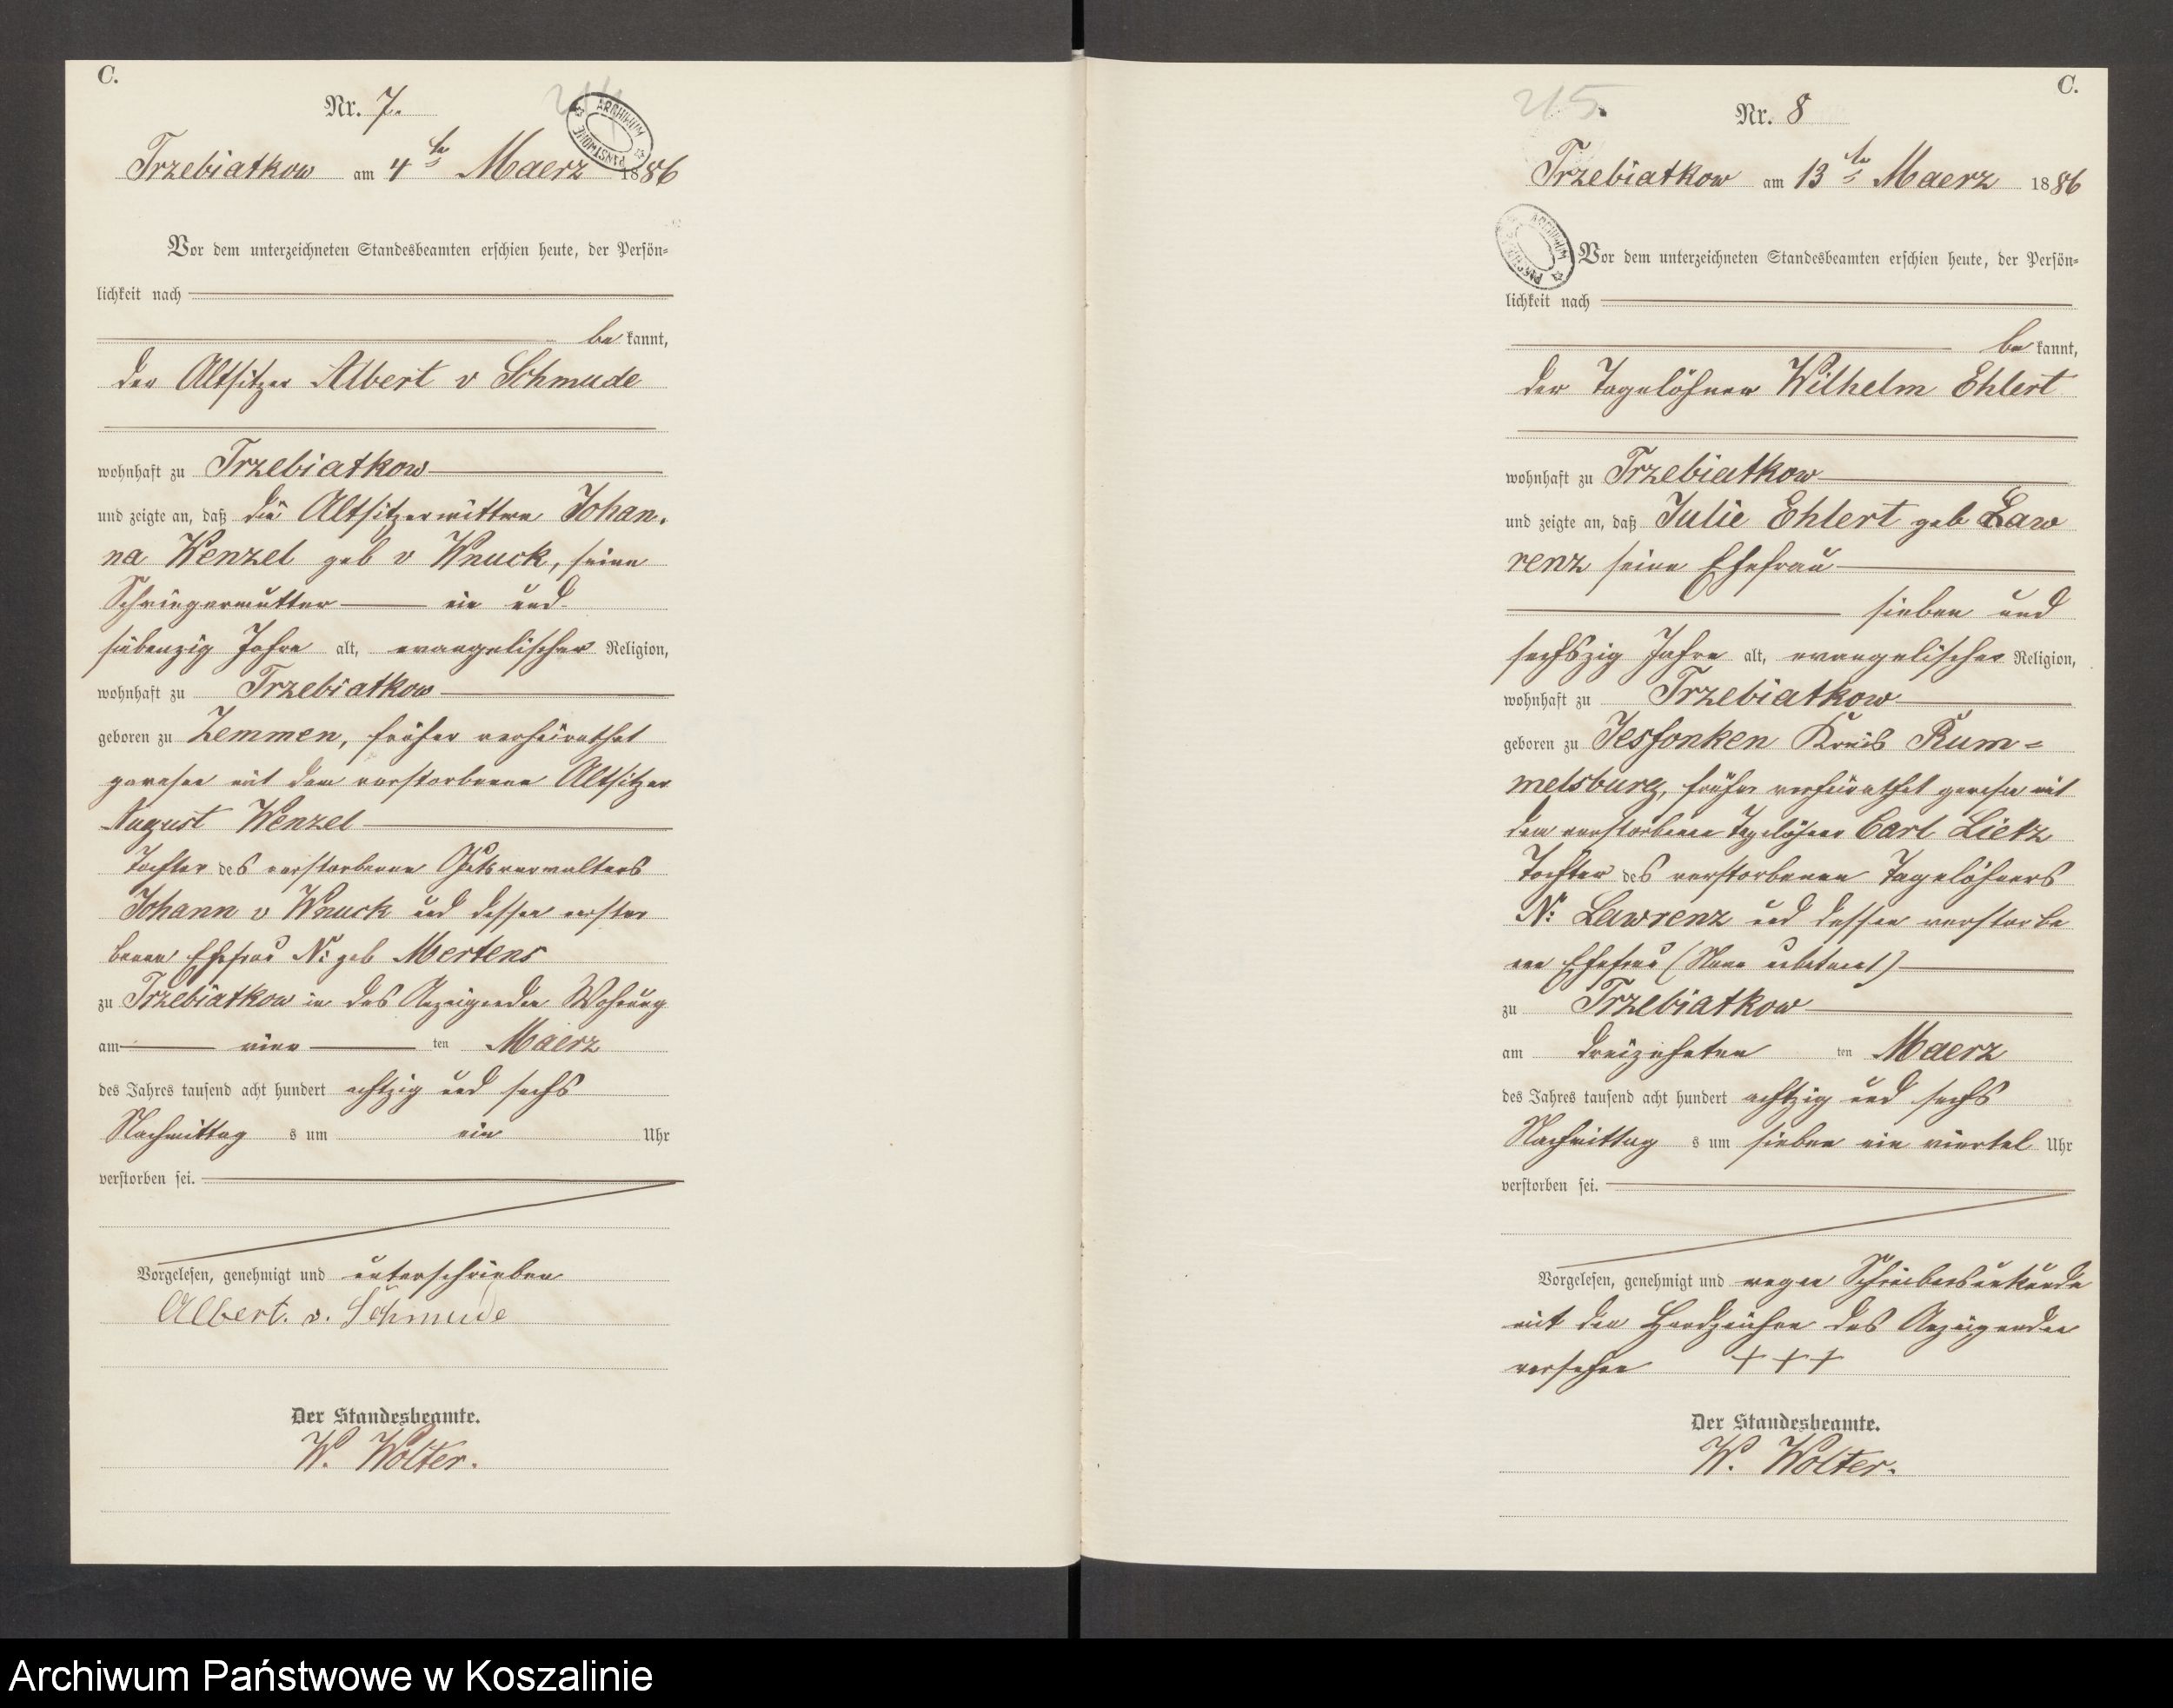 C.
Nr. 7.
Trzebiatkow am 4ten Maerz 1886
Vor dem unterzeichneten Standesbeamten erschien heute, der Persön=
lichkeit nach
be kannt,
der Altsitzer Albert v Schmude
wohnhaft zu Trzebiatkow
und zeigte an, daß die Altsitzerwittwe Johan,
na Wenzel geb v Wnuck, seine
Schwiegermutter ein und
siebenzig Jahre alt, evangelischer Religion,
wohnhaft zu Trzebiatkow
geboren zu Zemmen, früher verheirathet
gewesen mit dem verstorbenen Altsitzer
August Wenzel
Tochter des verstorbenen Gutsverwalters
Johann v Wnuck und dessen verstor
benen Ehefrau N: geb Mertens
zu Trzebiatkow in des Anzeigenden Wohnung
am vier ten Maerz
des Jahres tausend acht hundert achtzig und sechs
Nachmittag s um ein Uhr
verstorben sei.
Vorgelesen, genehmigt und unterschrieben
Albert. v. Schmude
Der Standesbeamte.
W. Wolter.
C.
215.
Nr. 8
Trzebiatkow am 13ten Maerz 1886
ARCHIWUM
Vor dem unterzeichneten Standesbeamten erschien heute, der Persön=
lichkeit nach
be kannt,
der Tagelöhner Wilhelm Ehlert
wohnhaft zu Trzebiatkow
und zeigte an, daß Julie Ehlert geb Law
renz seine Ehefrau
sieben und
sechszig Jahre alt, evangelischer Religion,
wohnhaft zu Trzebiatkow
geboren zu Jesfonken Kreis Rum=
melsburg, früher verheirathet gewesen mit
dem verstorbenen Tagelöhner Carl Lietz
Tochter des verstorbenen Tagelöhners
N: Lawrenz und dessen verstorbe
nen Ehefrau (Name unbekannt)
zu Trzebiatkow
am dreizehnten ten Maerz
des Jahres tausend acht hundert achtzig und sechs
Nachmittag s um sieben ein viertel Uhr
verstorben sei.
Vorgelesen, genehmigt und wegen Schreibensunkunde
mit den Handzeichen des Anzeigenden
versehen + + +
Der Standesbeamte.
W. Wolter.
Archiwum Państwowe w Koszalinie